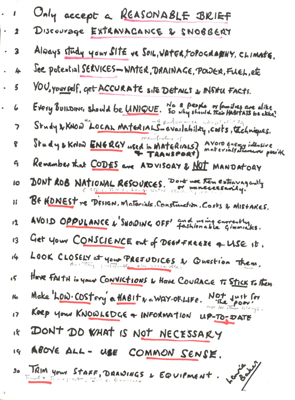 1 Only accept a REASONABLE BRIEF
2 Discourage EXTRAVAGANCE & SNOBBERY
3 Always study your SITE re SOIL, WATER, TOPOGRAPHY, CLIMATE.
4 See potential SERVICES - WATER, DRAINAGE, POWER, FUEL, etc
5 YOU, yourself, get ACCURATE SITE DETAILS & INSTRUCTS.
6 Every BUILDING should be UNIQUE. No 2 people or families are alike
So why should their HABITATS be alike!
7 Study & KNOW LOCAL MATERIALS - availability, costs, techniques.
8 Study & KNOW ENERGY used in MATERIALS AVOID ENERGY intensive
& TRANSPORT) materials wherever possible
9 Remember that CODES are ADVISORY & NOT MANDATORY
10 DONT ROB NATIONAL RESOURCES. Dont use them extravagantly
or unnecessarily.
11 BE HONEST re DESIGN, Materials, Construction, Costs & MISTAKES.
12 AVOID OPPULANCE & 'SHOWING OFF' and using currently
fashionable Gimmicks.
13 Get your CONSCIENCE out of DEEP FREEZE & USE it.
14 LOOK CLOSELY at your PREJUDICES & Question them.
15 HAVE FAITH in your CONVICTIONS & HAVE COURAGE TO STICK to them
16 Make 'LOW-COST'ery a HABIT & a WAY-OF-LIFE. NOT just for
the 'POOR'.
17 Keep your KNOWLEDGE & INFORMATION UP-TO-DATE
18 DONT DO WHAT IS NOT NECESSARY
19 ABOVE ALL - USE COMMON SENSE.
20 TRIM your STAFF, DRAWINGS & EQUIPMENT.
Laurie
Baker